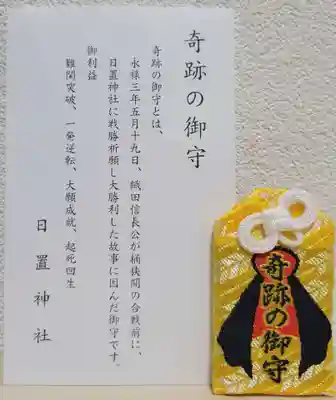 奇跡の御守
奇跡の御守とは、
永禄三年五月十九日、織田信長公が桶狭間の合戦前に、
日置神社に戦勝祈願し大勝利した故事に因んだ御守です。
御利益
難関突破、一発逆転、大願成就、起死回生
日置神社
奇跡の御守